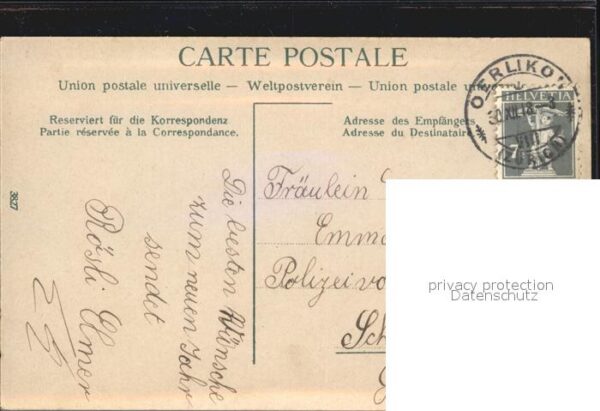 CARTE POSTALE
Union postale universelle — Weltpostverein — Union postale
Reserviert für die Korrespondenz
Partie réservée à la Correspondance.
Adresse des Empfängers
Adresse du Destinataire
OERLIKON
HELVETIA
30.XII.13.-3
VIII
(ZÜRICH)
3827
Die besten Wünsche
zum neuen Jahr
sendet
Rösli Elmer
Fräulein
Emma
Polizeivo
Sch
privacy protection
Datenschutz